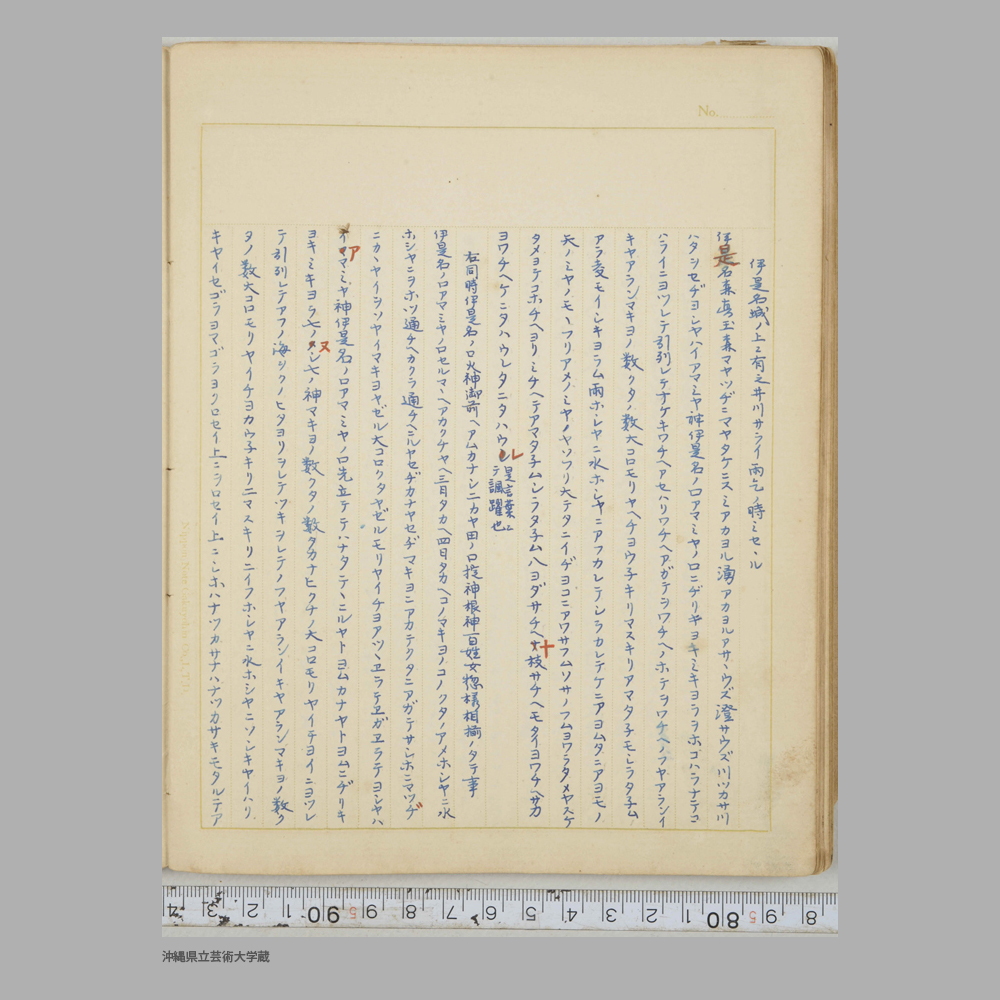 No.
伊是名城ノ上ニ有之井川サライ雨乞ノ時ミセヽル
伊是名森真玉森マヤツヂニマヤタケニスミアカヨル湧アカヨルアサハウズ澄サウズ川ツカサ川
ハタシセヂヨシヤハイアマミヤ神伊是名ノロアマミヤノロニヂリキヨキミキヨラヲホゴハラナデコ
ハライニヨツレテ引列レテオケキワチヘアセハリワチヘアガデヲワチヘノホテヲワチヘノブヤアランイ
キヤアランマキヨノ数クタノ数大コロモリヤヘチヨウ子キリマスキリアマタ子モシラタ子ム
アラ麦モイシキヨラム雨ホシヤニ水ホシヤニアフカレテシラカレテケニアヨムタニアヨモノ
天ノミヤノモヽフリアメノミヤノヤソフリ大テタニイヂヨコニアワサフムソサノフムヨワラタメヤスケ
タメヨテコホチヘヨリミチヘテアマタ子ムシラタ子ムハヨダサチヘ十枝サチヘモタイヨワチヘサカ
ヨワチヘケニタハウレタニタハウレ是言葉ニテ諷躍也
右同時伊是名ノロ火神御前ヘアムカナシニカヤ田ノロ掟神根神百姓女惣様相揃ノタテ事
伊是名ノロアマミヤノロセルマヽヘアカクチヤヘ三日タカヘ四日タカヘコノマキヨノコノクタノアメホシヤニ水
ホシヤニヲホツ通チヘカクラ通チヘニルヤセヂカナヤセヂマキヨニアカテクタニアガテサシホニマツヂ
ニカヽヤイヲソヤイマキヨヤゼル大コロクタヤゼルモリヤイチヨアツヽヱラテヱガヱラテヨシヤハ
アマミヤ神伊是名ノロアマミヤノロ先立テテハナタテヽニルヤトヨムカナヤトヨムニヂリキ
ヨキミキヨラ七ノヌシ七ノ神マキヨノ数クタノ数タカナヒクチノ大コロモリヤイテヨイニヨツレ
テ引列レテアフノ海シクノヒタヨリヲレテツキヲレテノフヤアランイキヤアランマキヨノ数ク
タノ数大コロモリヤイチヨカウ子キリニマスキリニイフホシヤニ水ホシヤニソンキヤイハリ
キヤイセゴラヨマゴラヨクロセイ上ニシロセイ上ニシホハナツカサナハナツカサキモタルテア
沖縄県立芸術大学蔵